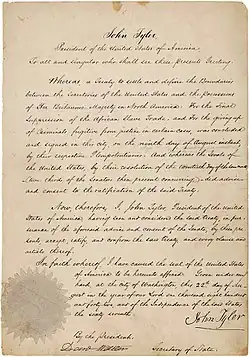 John Tyler
President of the United States of America.
To all and singular who shall see these presents Greeting.
Whereas a Treaty to settle and define the Boundaries
between the Territories of the United States and the possessions
of Her Britannic Majesty in North America: For the Final
Suppression of the African Slave Trade: and For the giving up
of Criminals fugitive from justice in certain cases, was concluded
and signed in this city, on the ninth day of August instant,
by their respective Plenipotentiaries: And whereas the Senate of
the United States, by their resolution of the
two thirds of the Senators then present concurring, did advise
and consent to the ratification of the said Treaty:
Now, therefore, I, John Tyler, President of the United
States of America, having seen and considered the said Treaty, in pur-
suance of the aforesaid advice and consent of the Senate, by these pre-
sents, accept, ratify, and confirm the said treaty and every clause and
article thereof.
In faith whereof I have caused the seal of the United States
of America to be hereunto affixed. Given under my
hand, at the city of Washington, this 22d day of Au-
gust in the year of our Lord one thousand eight hundred
and forty two, and of the Independence of the United States
the sixty seventh.
John Tyler
By the President:
Secretary of State.